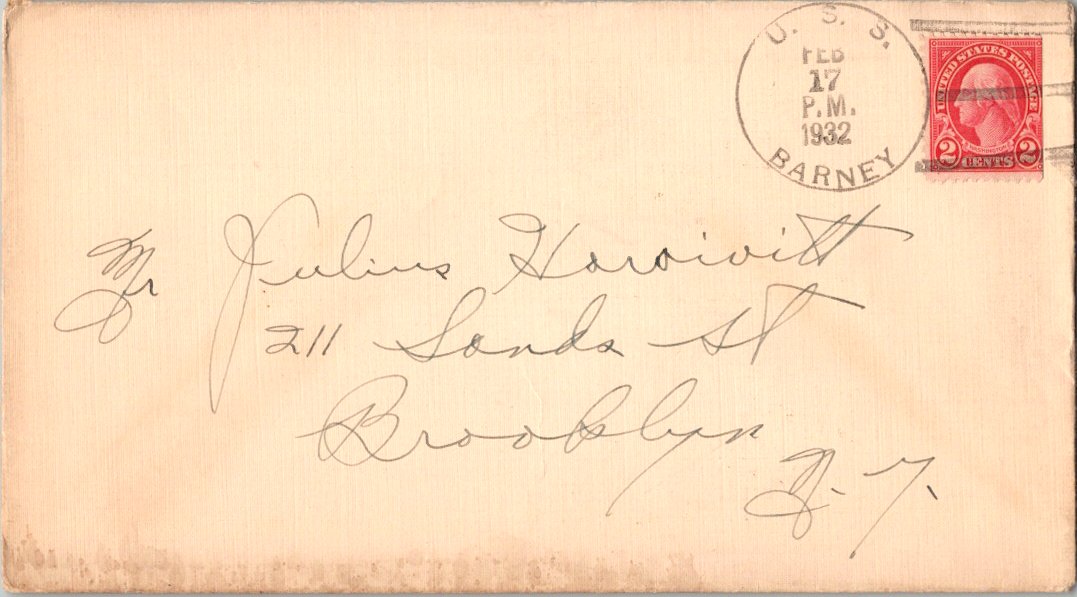 U. S. S.
FEB
17
P.M.
1932
BARNEY
UNITED STATES POSTAGE
WASHINGTON
2 CENTS 2
Mr Julius Horowitt
211 Sands St
Brooklyn
N. Y.